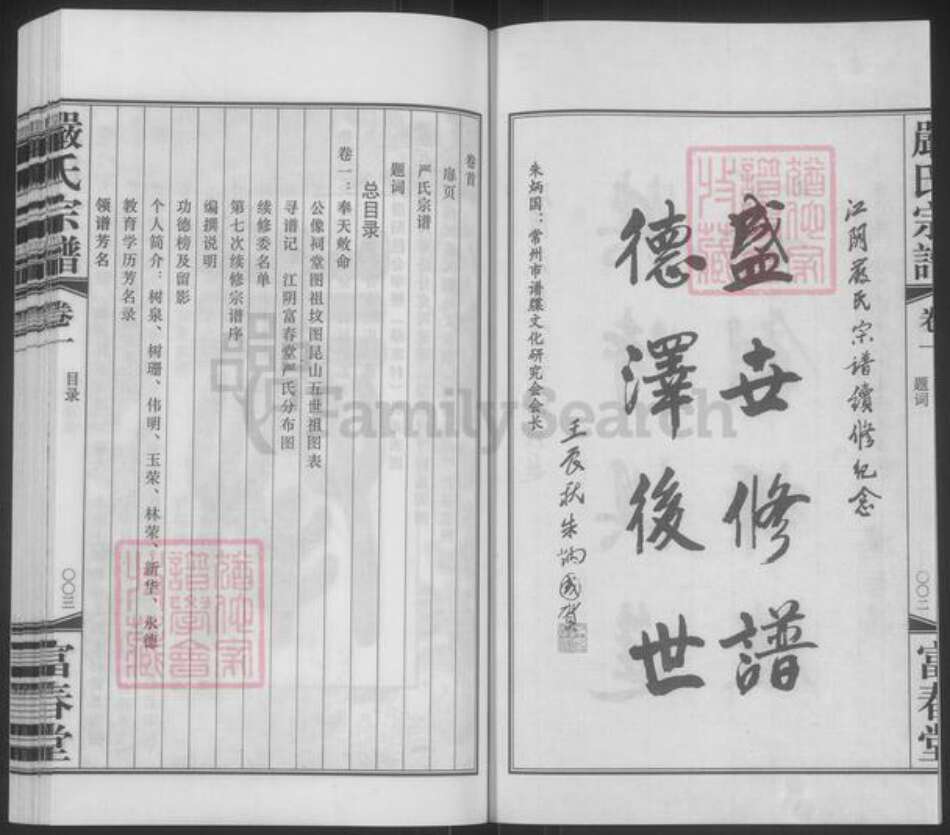 嚴氏宗譜
卷一
题词
〇〇二
富春堂
江阴嚴氏宗譜續修纪念
盛世修譜
德澤後世
壬辰秋朱炳國賀
朱炳国：常州市谱牒文化研究会会长
卷首
扉页
严氏宗谱
题词
总目录
卷一：奉天敕命
公像祠堂图祖坟图昆山五世祖图表
寻谱记　江阴富春堂严氏分布图
续修委名单
第七次续修宗谱序
编撰说明
功德榜及留影
个人简介：树泉、树珊、伟明、玉荣、林荣、新华、永德
教育学历芳名录
领谱芳名
嚴氏宗譜
卷一
目录
〇〇三
富春堂
FamilySearch